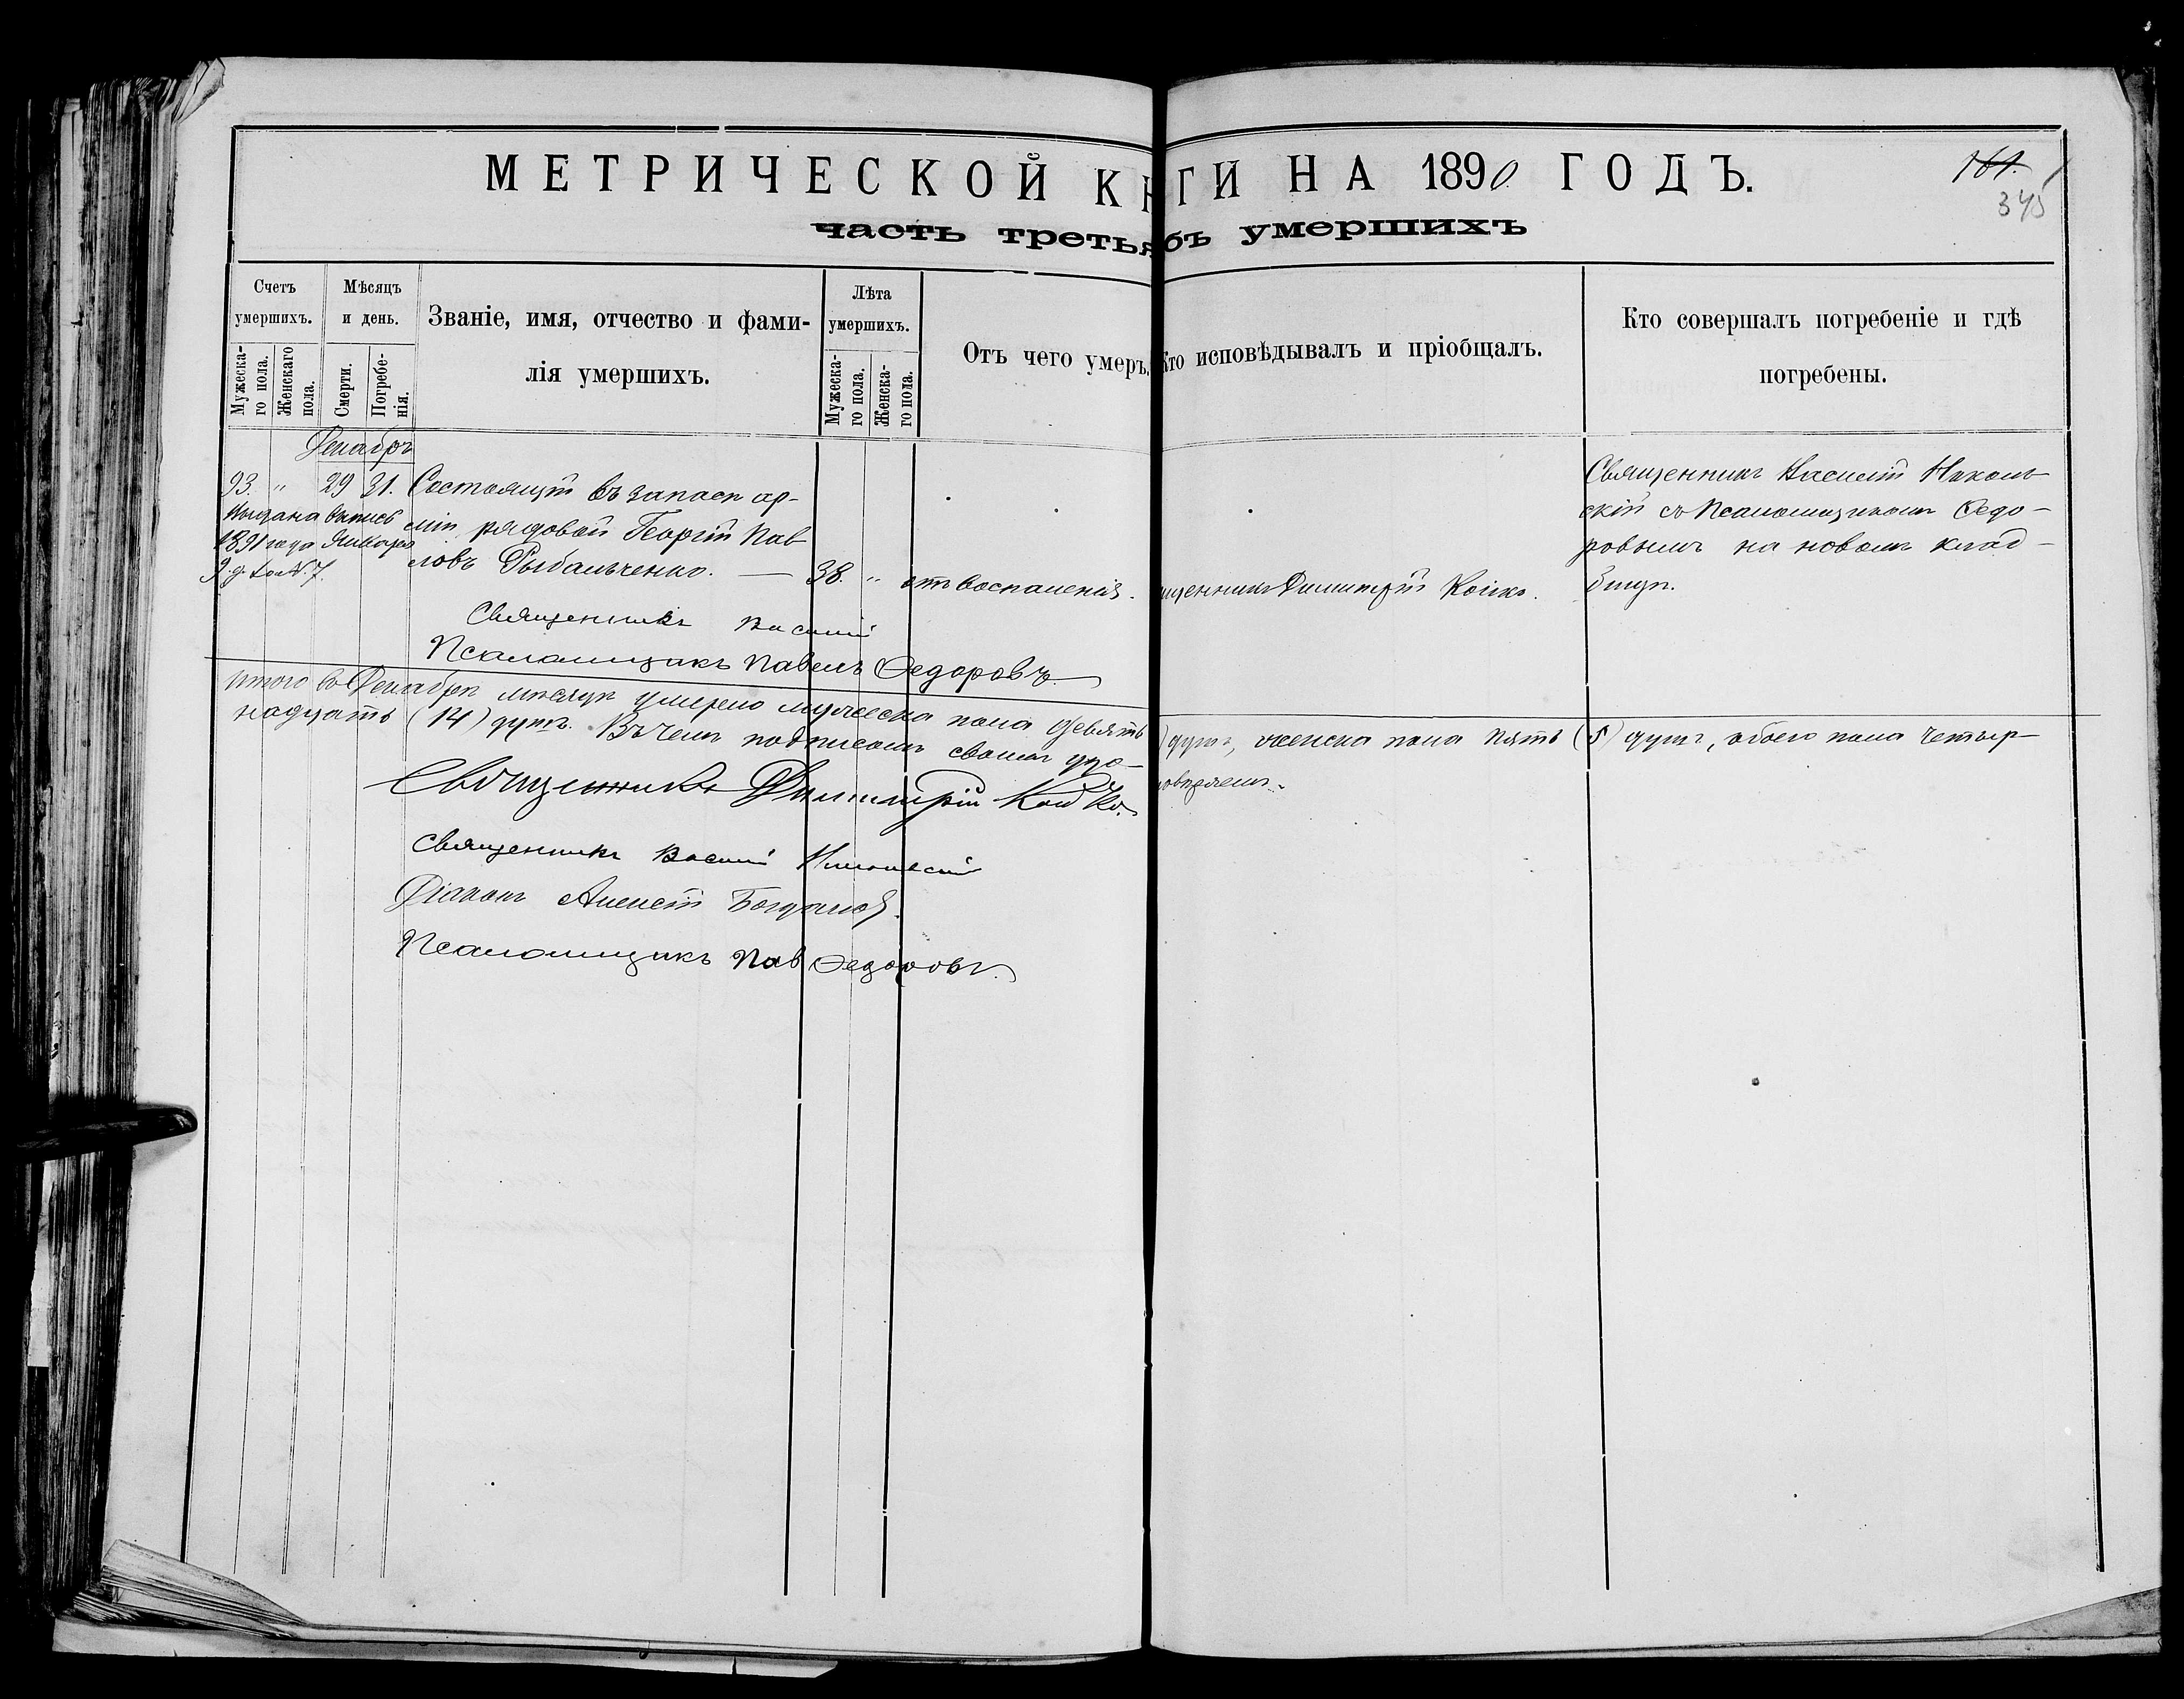 МЕТРИЧЕСКОЙ К ГИ НА 1890 ГОДЪ.
161.
345
часть третья бъ умершихъ
Счетъ умершихъ.
Мужеска-го пола.
Женскаго пола.
Мѣсяцъ и день.
Смерти.
Погребе-нія.
Званіе, имя, отчество и фами-
лія умершихъ.
Лѣта умершихъ.
Мужеска-го пола.
Женска-го пола.
Отъ чего умеръ.
Кто исповѣдывалъ и пріобщалъ.
Кто совершалъ погребеніе и гдѣ
погребены.
Декабрь
93. " 29 31. Состоящій въ запасѣ ар-
міи рядовой Георгій Пав
ловъ Рыбальченко. — 38. " отъ воспаленія. щенникъ Димитрій Койко.
Выдана выпись
1891 года Января
9 д. за №. 7.
Священникъ Василій Николь
скій съ Псаломщикомъ Федо-
ровымъ на новомъ клад-
бищѣ.
Священникъ Василій
Псаломщикъ Павелъ Федоровъ
Итого въ Декабрѣ мѣсяцѣ умерло мужеска пола девять ) душъ, женска пола пять (5) душъ, обоего пола четыр-
надцать (14) душъ. Въ чемъ подписомъ своимъ удо-
стовѣряемъ.
Священникъ Димитрій Койко.
Священникъ Василій Никольскій
Діаконъ Алексѣй Богдановъ.
Псаломщикъ Пав Федоровъ.